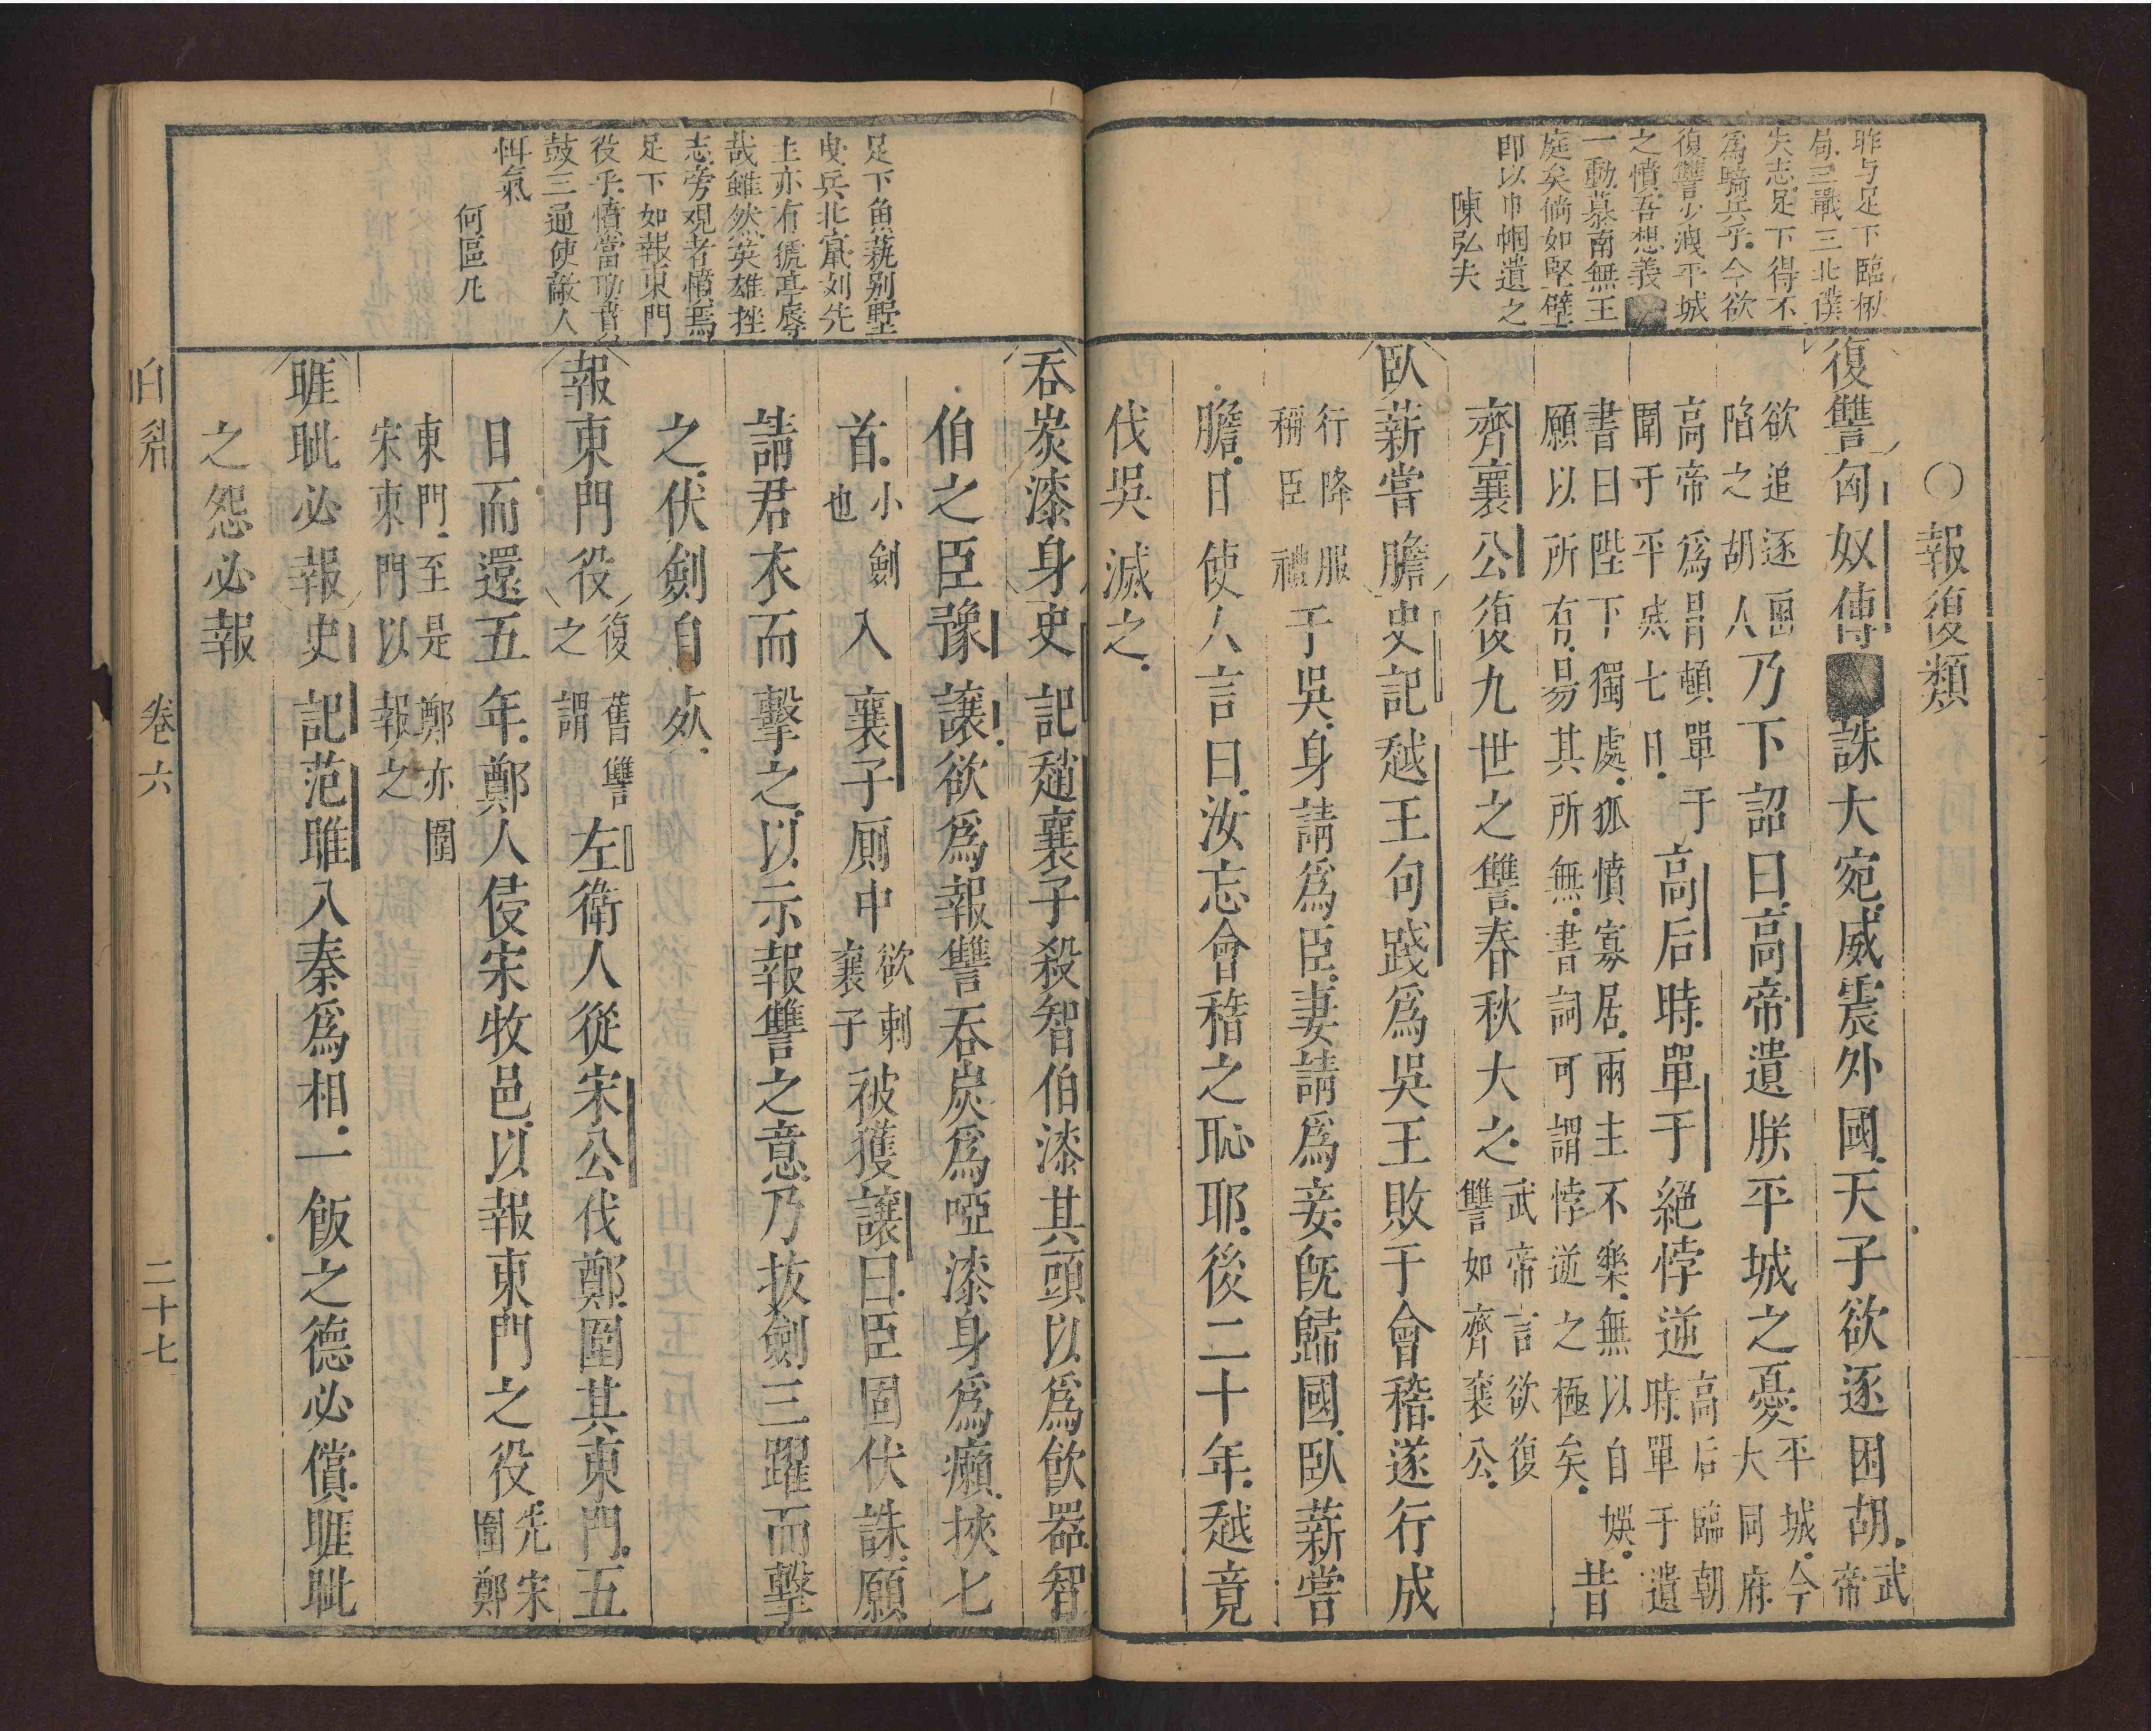 昨与足下臨楸
局三戰三北僕
失志足下得不
為驕兵乎今欲
復讐少洩平城
之憤吾想義
一動慕南無王
庭矣倘如堅壁
即以巾幗遺之
陳弘夫
○報復類
復讐匈奴傳誅大宛威震外國天子欲逐困胡武帝
欲追逐匈奴陷之胡人乃下詔曰高帝遺朕平城之憂平城今大同府
高帝爲冒頓單于圍于平城七日高后時單于絕悖逆高后臨朝時單于遺
書曰陛下獨處孤憤寡居兩主不樂無以自娛願以所有易其所無書詞可謂悖逆之極矣昔
齊襄公復九世之讐春秋大之武帝言欲復讐如齊襄公
臥薪嘗膽史記越王句踐爲吳王敗于會稽遂行成
行降服稱臣禮于吳身請爲臣妻請爲妾旣歸國臥薪嘗
膽日使人言曰汝忘會稽之恥耶後二十年越竟
伐吳滅之
足下魚蕤别墅
曳兵北竄刘先
主亦有猇亭辱
哉雖然英雄挫
志旁观者憤焉
足下如報東門
役乎憤當助君
鼓三通使敵人
恒氣
何區凡
吞炭漆身史記趙襄子殺智伯漆其頭以爲飮器智
伯之臣豫讓欲爲報讐吞炭爲啞漆身爲癩挾匕
首小劍也入襄子厠中欲刺襄子被獲讓曰臣固伏誅願
請君衣而擊之以示報讐之意乃拔劍三躍而擊
之伏劍自死
報東門役復舊讐之謂左衛人從宋公伐鄭圍其東門五
日而還五年鄭人侵宋牧邑以報東門之役先宋圍鄭
東門至是鄭亦圍宋東門以報之
睚眦必報史記范雎入秦爲相一飯之德必償睚眦
之怨必報
卷六
二十七